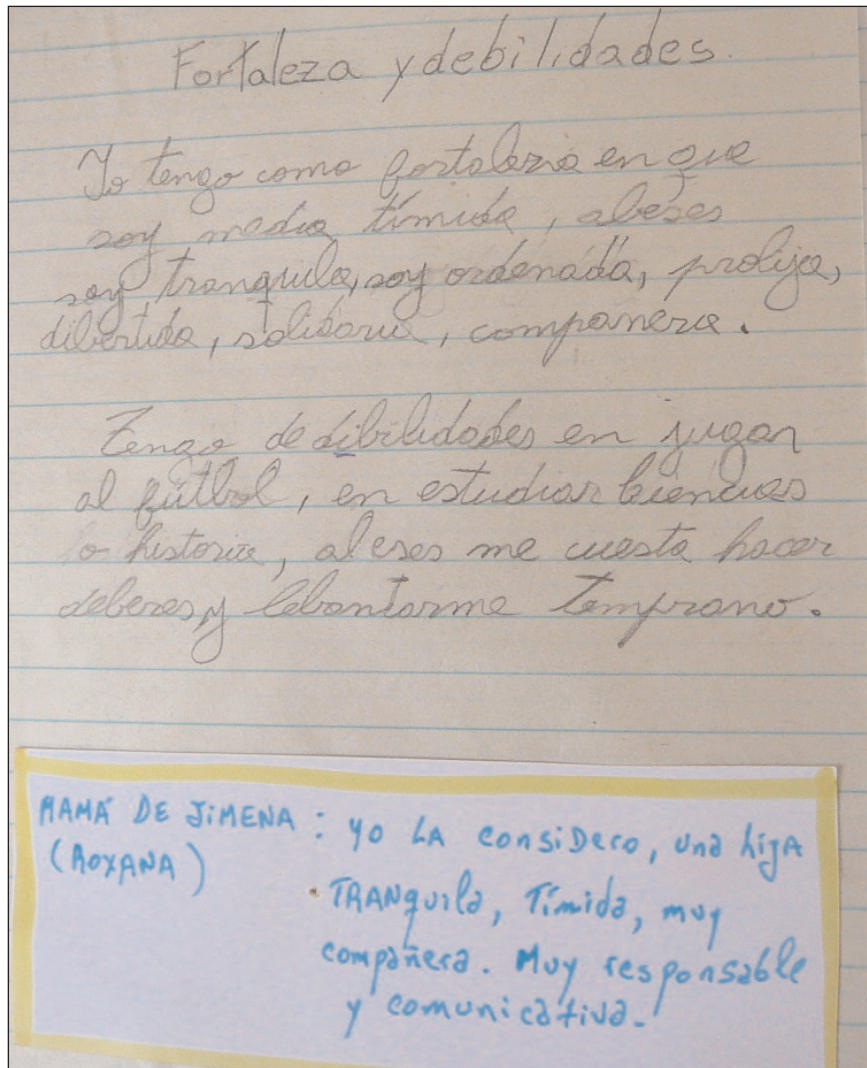 Fortaleza y debilidades.
Yo tengo como fortaleza en que
soy media tímida, abeses
soy tranquila, soy ordenada, prolija,
dibertida, solidaria, companera.
Tengo de dibilidades en jugar
al fútbol, en estudiar ciencias
o historia, abeses me cuesta hacer
deberes, y lebantarme temprano.
MAMÁ DE JIMENA : yo LA consiDero, una hijA
(ROXANA)
TRANquila, Tímida, muy
compañera. Muy responsable
y comunicativa.